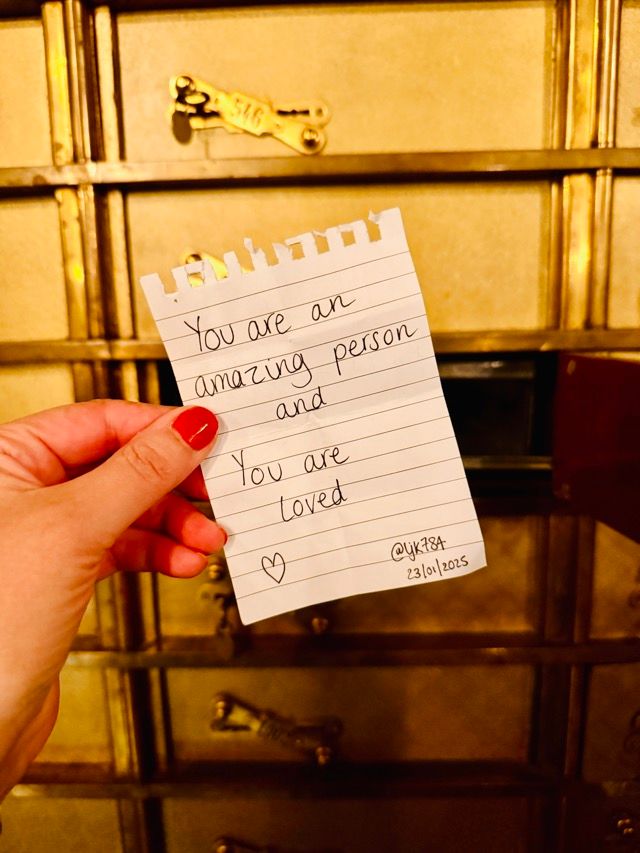 546
You are an
amazing person
and
You are
loved
@ljk784
23/01/2025